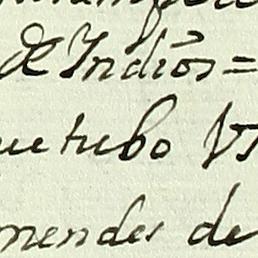 de Indios=
ue tubo Vs
mendes de